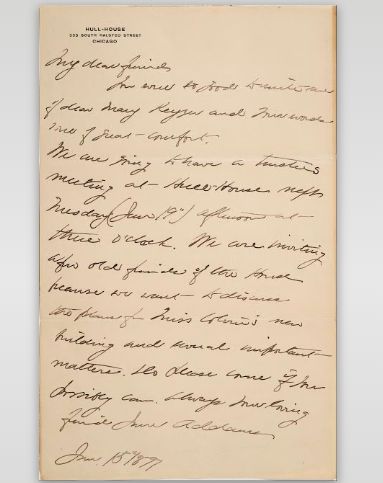 HULL-HOUSE
335 SOUTH HALSTED STREET
CHICAGO
My dear friends
You were so good to write me
of dear Mary Keyser and your words
were of great comfort.
We are going to have a trustees
meeting at Hull-House next
Tuesday (June 19") afternoon at
three o'clock. We are inviting
a few old friends of the House
because we want to discuss
the plans of Miss Colvin's new
building and several important
matters. Do please come if you
possibly can. Always your loving
friend Jane Addams
June 15" 1897